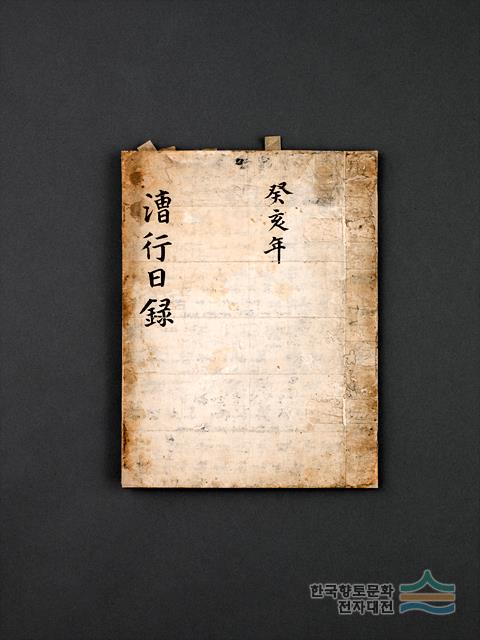 癸亥年
漕行日録
한국향토문화
전자대전